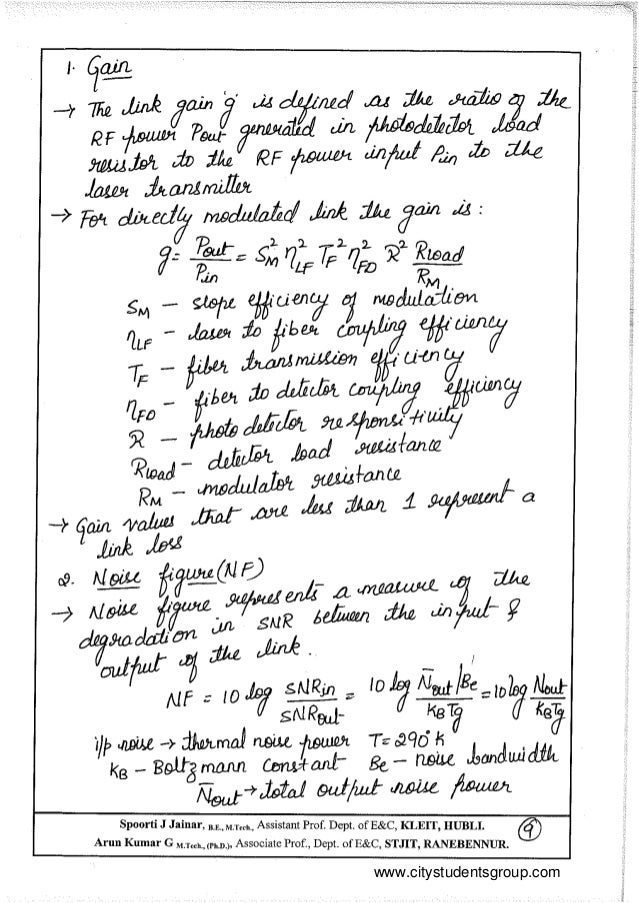 1. Gain
→ The link gain 'g' is defined as the ratio of the
RF power Pout generated in photodetector load
resistor to the RF power input Pin to the
laser transmitter
→ For directly modulated link the gain is :
g = Pout/Pin = S_M² η_LF² T_F² η_FD² R² Rload/R_M
S_M – slope efficiency of modulation
η_LF – laser to fiber coupling efficiency
T_F – fiber transmission efficiency
η_FD – fiber to detector coupling efficiency
R – photo detector responsitivity
Rload – detector load resistance
R_M – modulator resistance
→ Gain values that are less than 1 represent a
link loss
2. Noise figure (NF)
→ Noise figure represents a measure of the
degradation in SNR between the input &
output of the link.
NF = 10 log SNRin/SNRout = 10 log N̄out/Be / K_B T g = 10 log Nout/K_B T g
i/p noise → thermal noise power T = 290°K
K_B – Boltzmann Constant Be – noise bandwidth
N̄out → total output noise power
Spoorti J Jainar, B.E., M.Tech., Assistant Prof. Dept. of E&C, KLEIT, HUBLI.
Arun Kumar G M.Tech., (Ph.D.), Associate Prof., Dept. of E&C, STJIT, RANEBENNUR.
9
www.citystudentsgroup.com